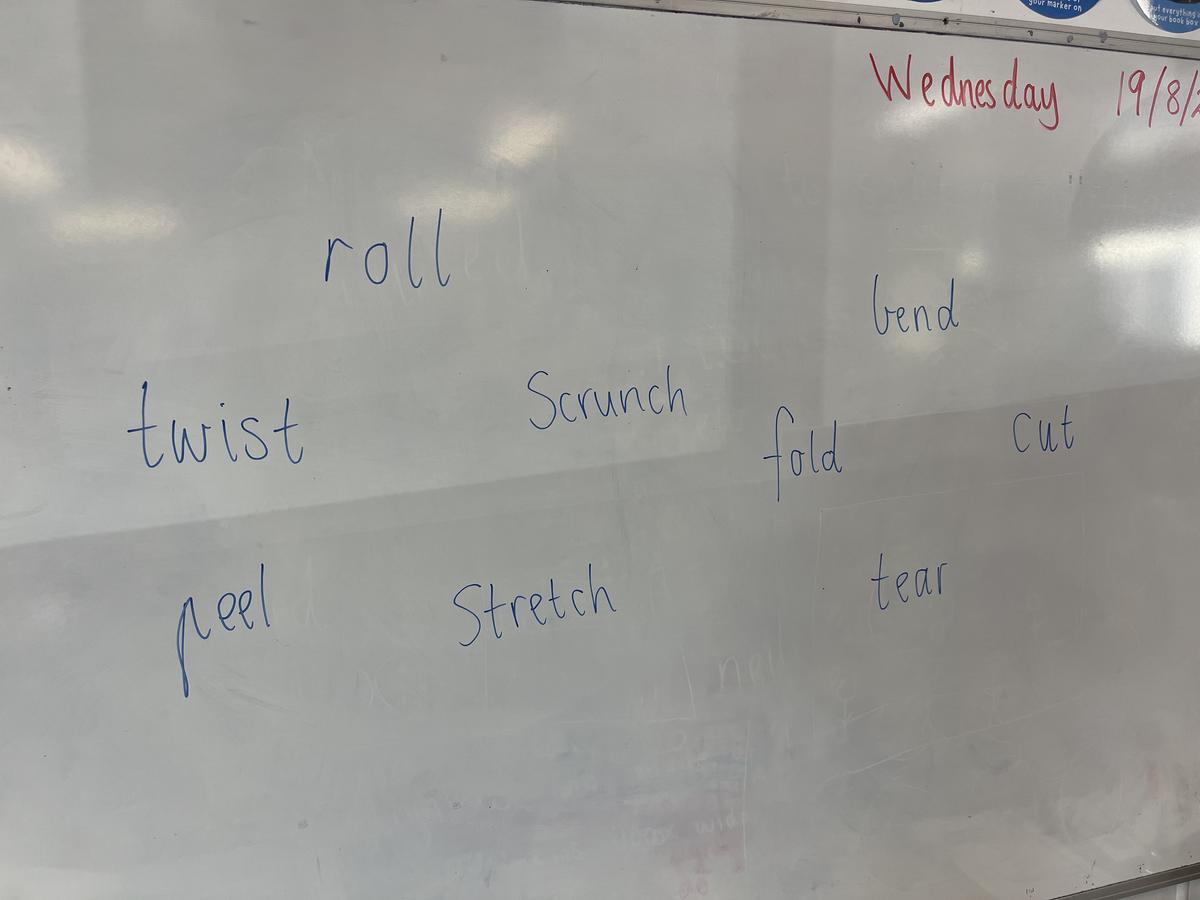 your marker on
put everything
your book box
Wednesday 19/8/2
roll
bend
twist
Scrunch
fold
cut
peel
Stretch
tear